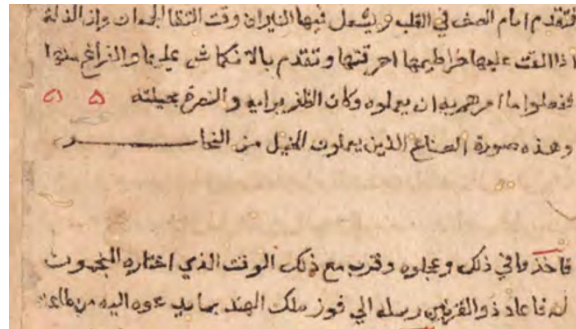 فتقدم امام الصف في القلب ويشعل فيها النيران وقت التقا الجمعان وان الفيلة
اذا القت عليها خراطيمها احرقتها وتقدم بالانكماش عليها والفراغ منها
ففعلوا ما امرهم به ان يعملوه وكان الظفر برايه والنصرة بحيلته ۵ ۵
وهذه صورة الصناع الذين يعملون الخيل من النحاس
فاخذ وافي ذلك وعجلوه وقرب مع ذلك الوقت الذي اختاره المنجمون
له فاعاد ذو القرنين رسله الي فوز ملك الهند بما يدعوه اليه من طاعته